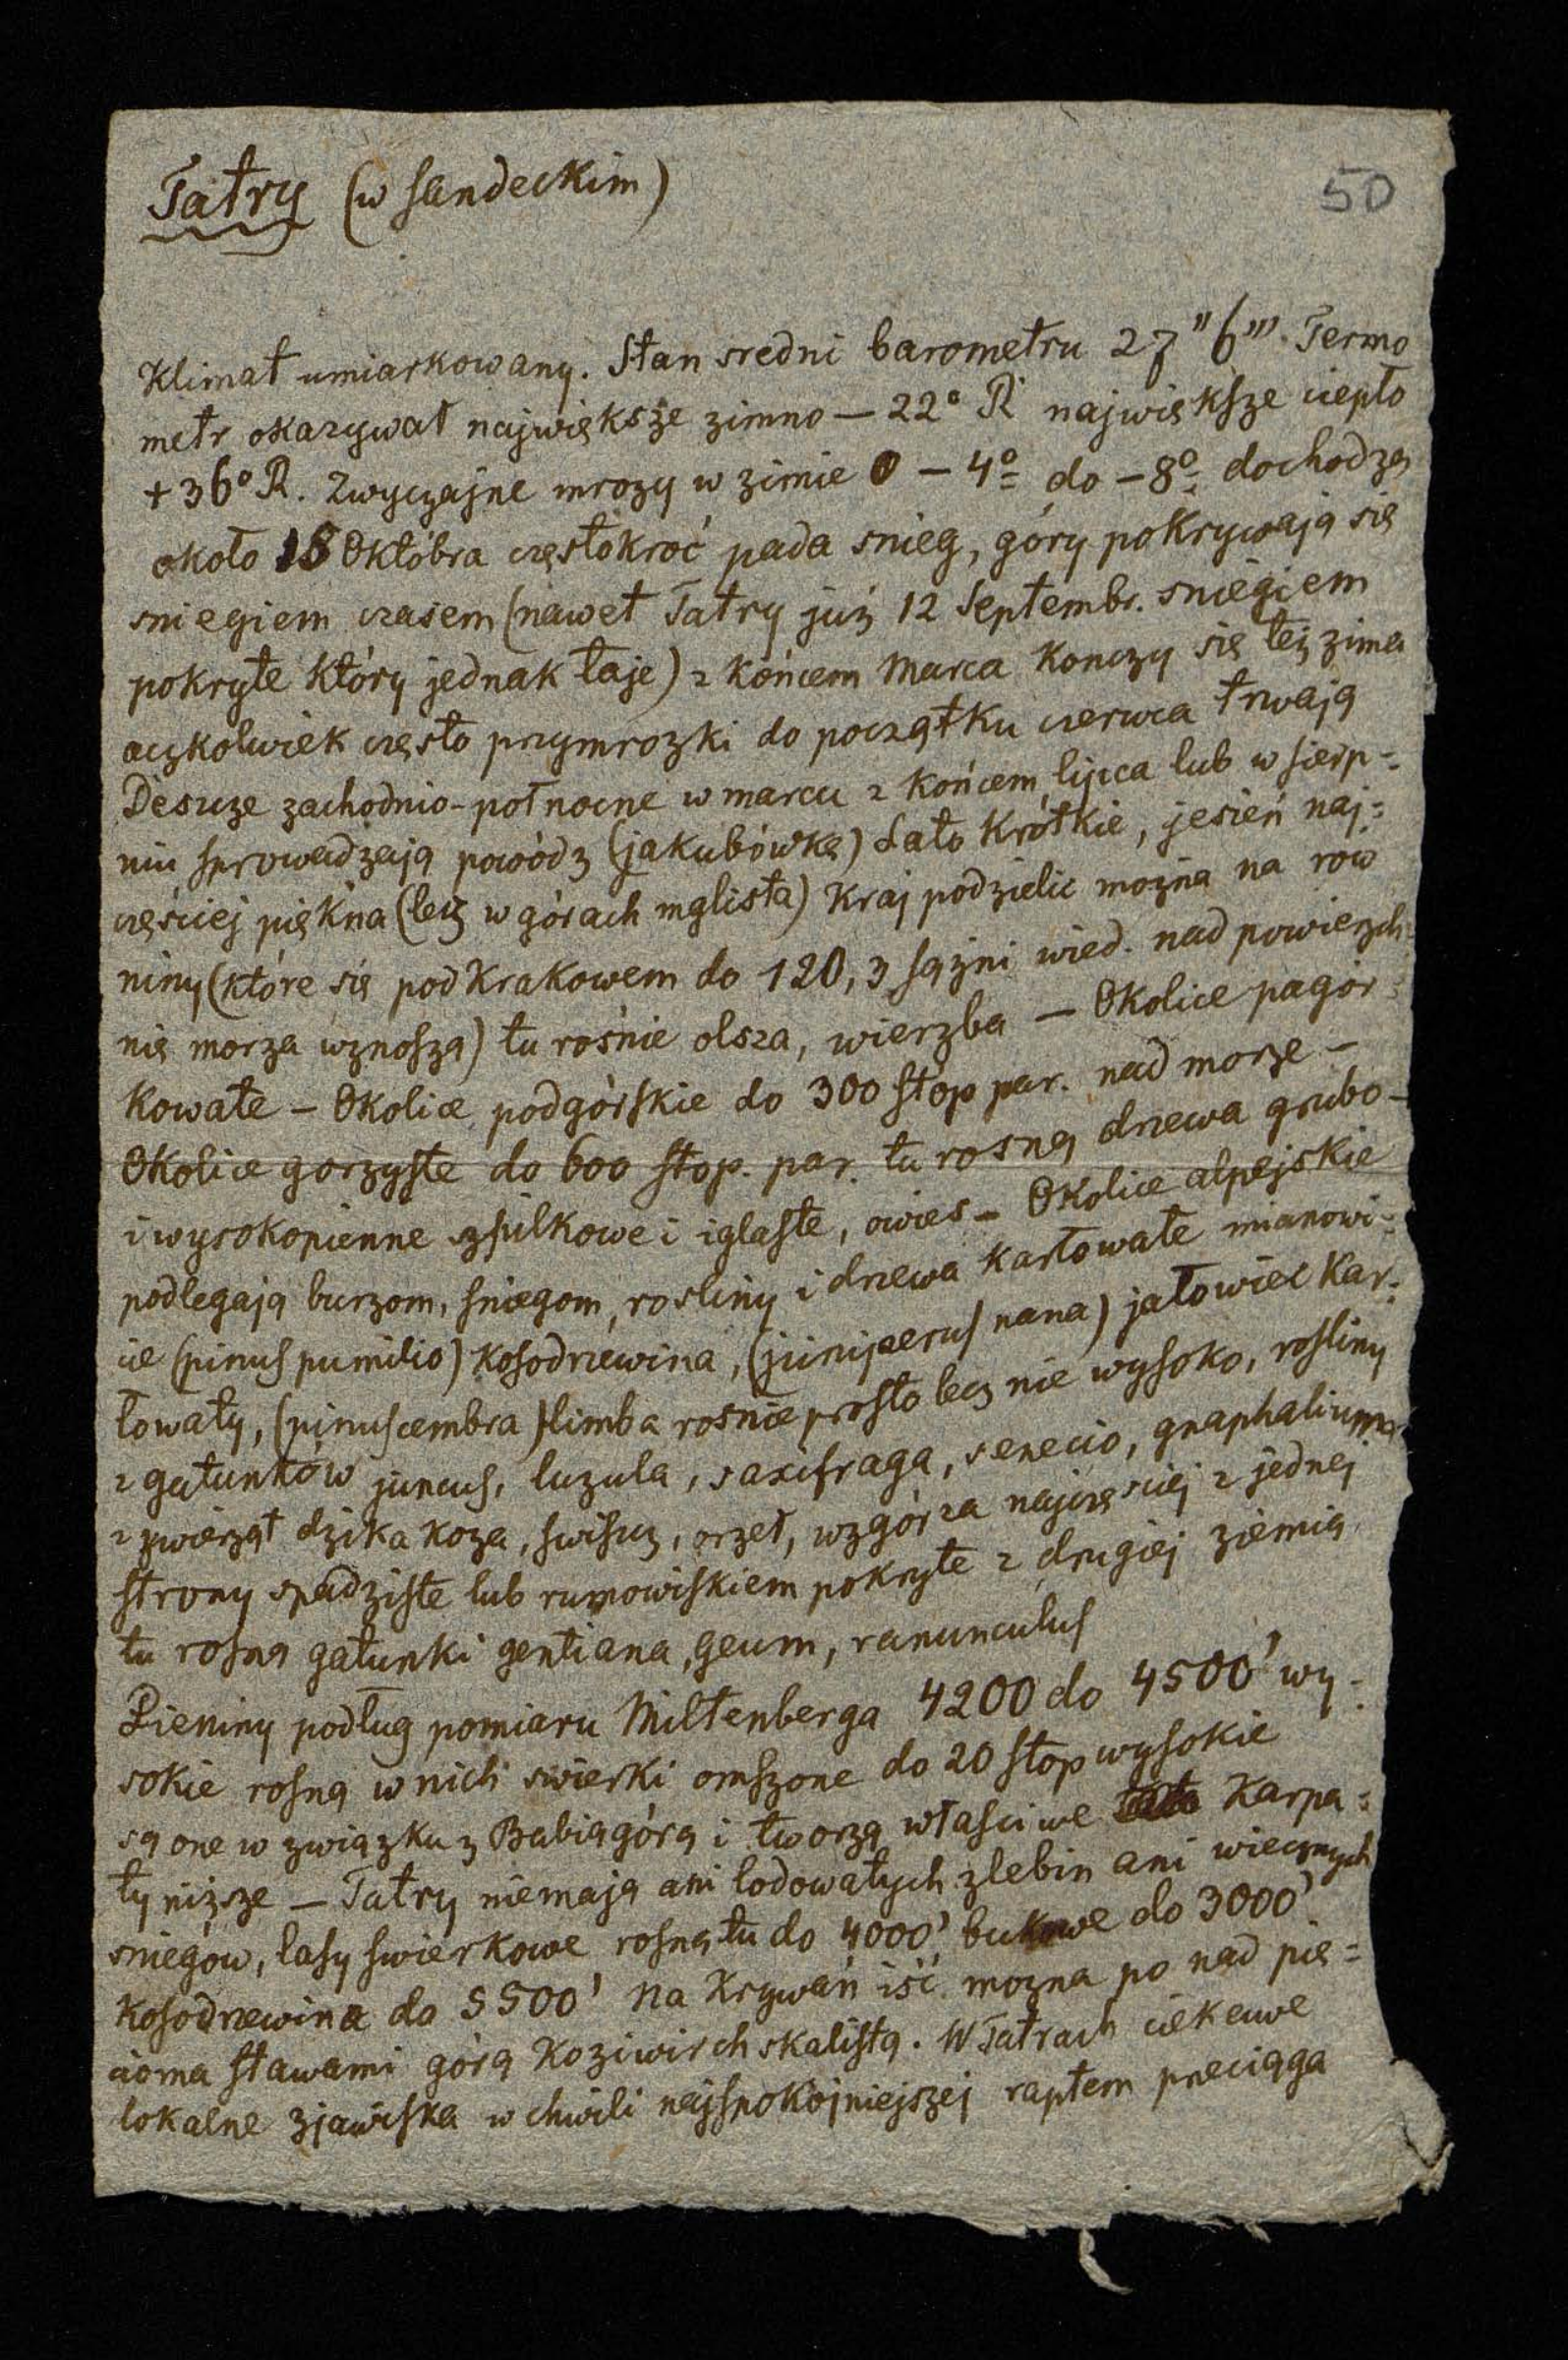 Tatry (w Sandeckim)
50
Klimat umiarkowany. Stan sredni barometru 27" 6"' Termo
metr okazywał największe zimno — 22° R największe ciepło
+ 36° R. Zwyczajne mrozy w zimie 0 — 4° do – 8° dochodzą
około 18 Októbra częstokroć pada snieg, góry pokrywają się
sniegiem czasem (nawet Tatry już 12 Septembr. sniegiem
pokryte który jednak taje) z końcem Marca Konczy się też zima
aczkolwiek często przymrozki do początku czerwca trwają
Deszcze zachodnio-połnocne w marcu z końcem lipca lub w sierp=
niu sprowadzają powódz (jakubówka) Lato Krótkie, jesień naj=
częściej piękna (lecz w górach mglista) Kraj podzielic można na rów
niny (które się pod Krakowem do 120,3 sążni wied. nad powierzch=
nię morza wznoszą) tu rośnie olsza, wierzba — Okolice pagor=
kowate – Okolice podgórskie do 300 stóp par. nad morze –
Okolice gorzyste do 600 stop. par. tu rosną drzewa grubo-
i wysokopienne szpilkowe i iglaste, owies – Okolice alpejskie
podlegają burzom, sniegom, rosliny i drzewa karłowate mianowi=
cie (pinus pumilio) kosodrzewina, (juniperus nana) jałowiec Kar=
łowaty, (pinus cembra) limba rosnie prosto lecz nie wysoko, rosliny
z gatunków juncus, luzula, saxifraga, senecio, gnaphalium
z zwierząt dzika koza, swiszcz, orzeł, wzgórza najczęsciej z jednej
strony spadziste lub rumowiskiem pokryte z drugiej ziemią
tu rosną gatunki gentiana, geum, ranunculus
Pieniny podług pomiaru Miltenberga 4200 do 4500' wy=
sokie rosną w nich swierki omszone do 20 stop wysokie
są one w związku z Babiagórą i tworzą własciwe Karpa=
ty niższe — Tatry niemają ani lodowatych zlebin ani wiecznych
sniegow, lasy swierkowe rosną tu do 4000', bukowe do 3000'
Kosodrzewina do 5500' na Krywań iść mozna po nad pię=
cioma stawami górą Koziwirch skalistą. W Tatrach ciekawe
lokalne zjawiska w chwili najspokojniejszej raptem przeciąga